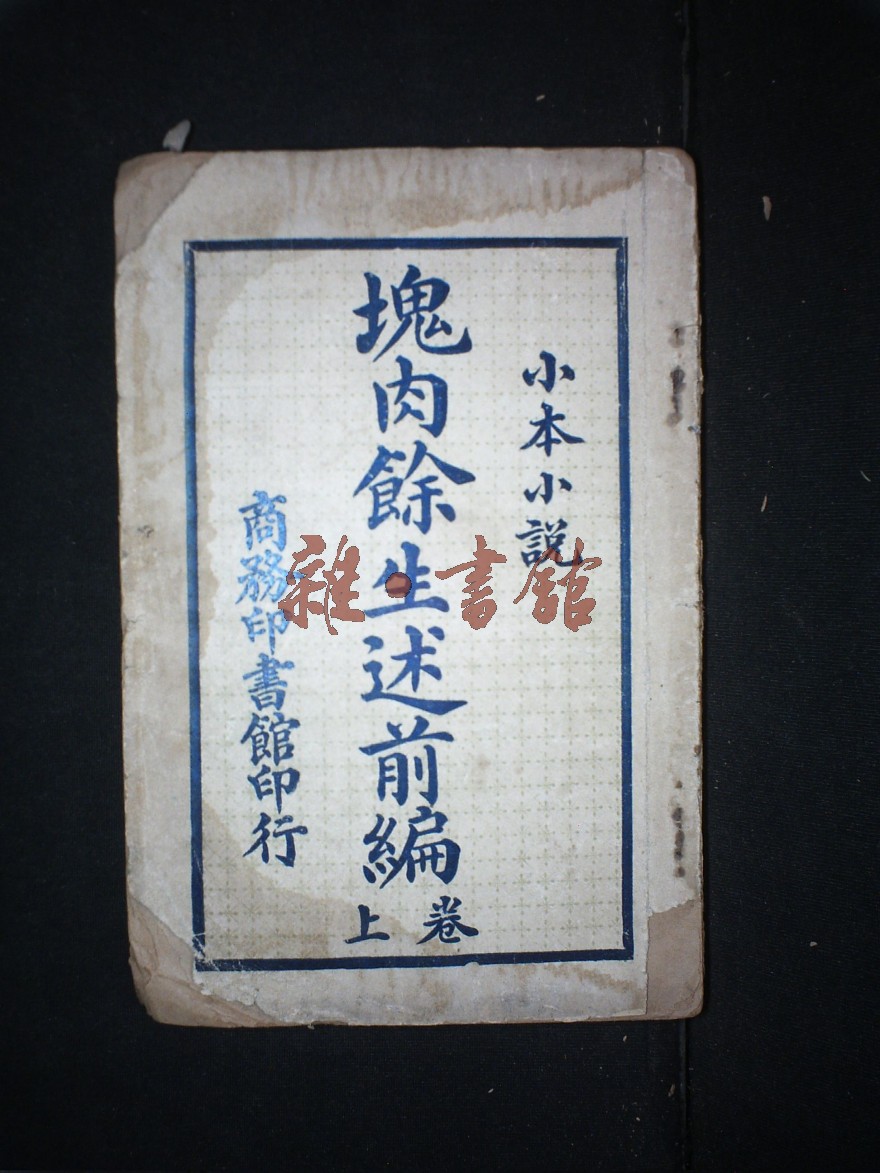 小本小説
塊肉餘生述前編
卷上
商務印書館印行
雜·書館